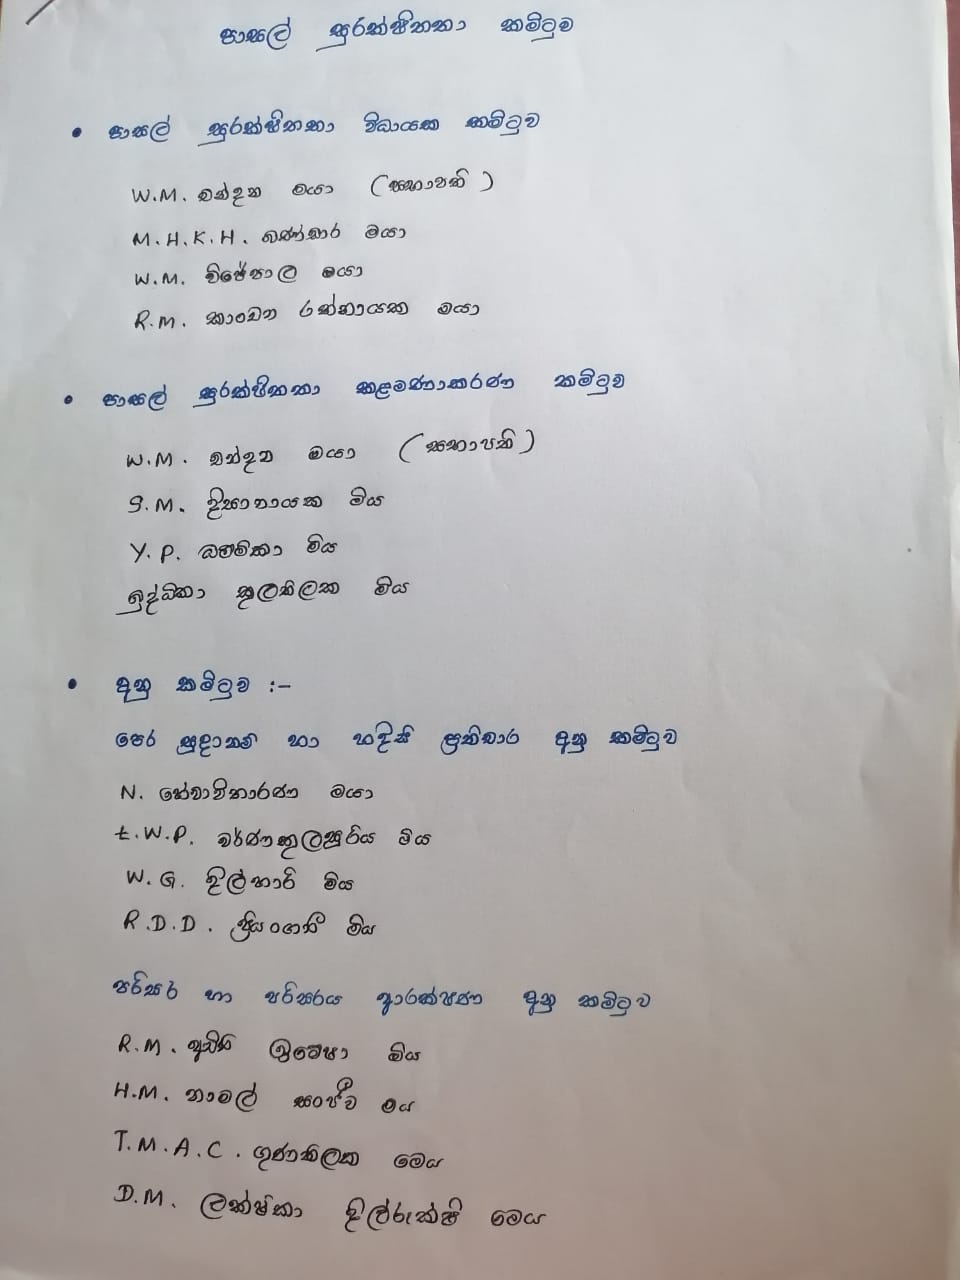 පාසල් සුරක්ෂිතතා කමිටුව
• පාසල් සුරක්ෂිතතා විධායක කමිටුව
W.M. චන්දන මයා (සභාපති)
M.H.K.H. බණ්ඩාර මයා
W.M. විජේපාල මයා
R.M. කාංචන රත්නායක මයා
• පාසල් සුරක්ෂිතතා කළමණාකරණ කමිටුව
W.M. චන්දන මයා (සභාපති)
S.M. දිසානායක මිය
Y.P. ධම්මිකා මිය
ඉද්ධිකා තුලතිලක මිය
• අනු කමිටුව :-
පෙර සූදානම් හා හදිසි ප්‍රතිචාර අනු කමිටුව
N. හේවාවිතාරණ මයා
t.W.P. වර්ණකුලසූරිය මිය
W.G. දිල්හානි මිය
R.D.D. ප්‍රියංගනී මිය
පරිසර හා පරිසරය ආරක්ෂණ අනු කමිටුව
R.M. ඉමේෂා මිය
H.M. නාමල් සංජීව මය
T.M.A.C. ගුණතිලක මෙය
D.M. ලක්ෂිකා දිල්රුක්ෂි මෙය